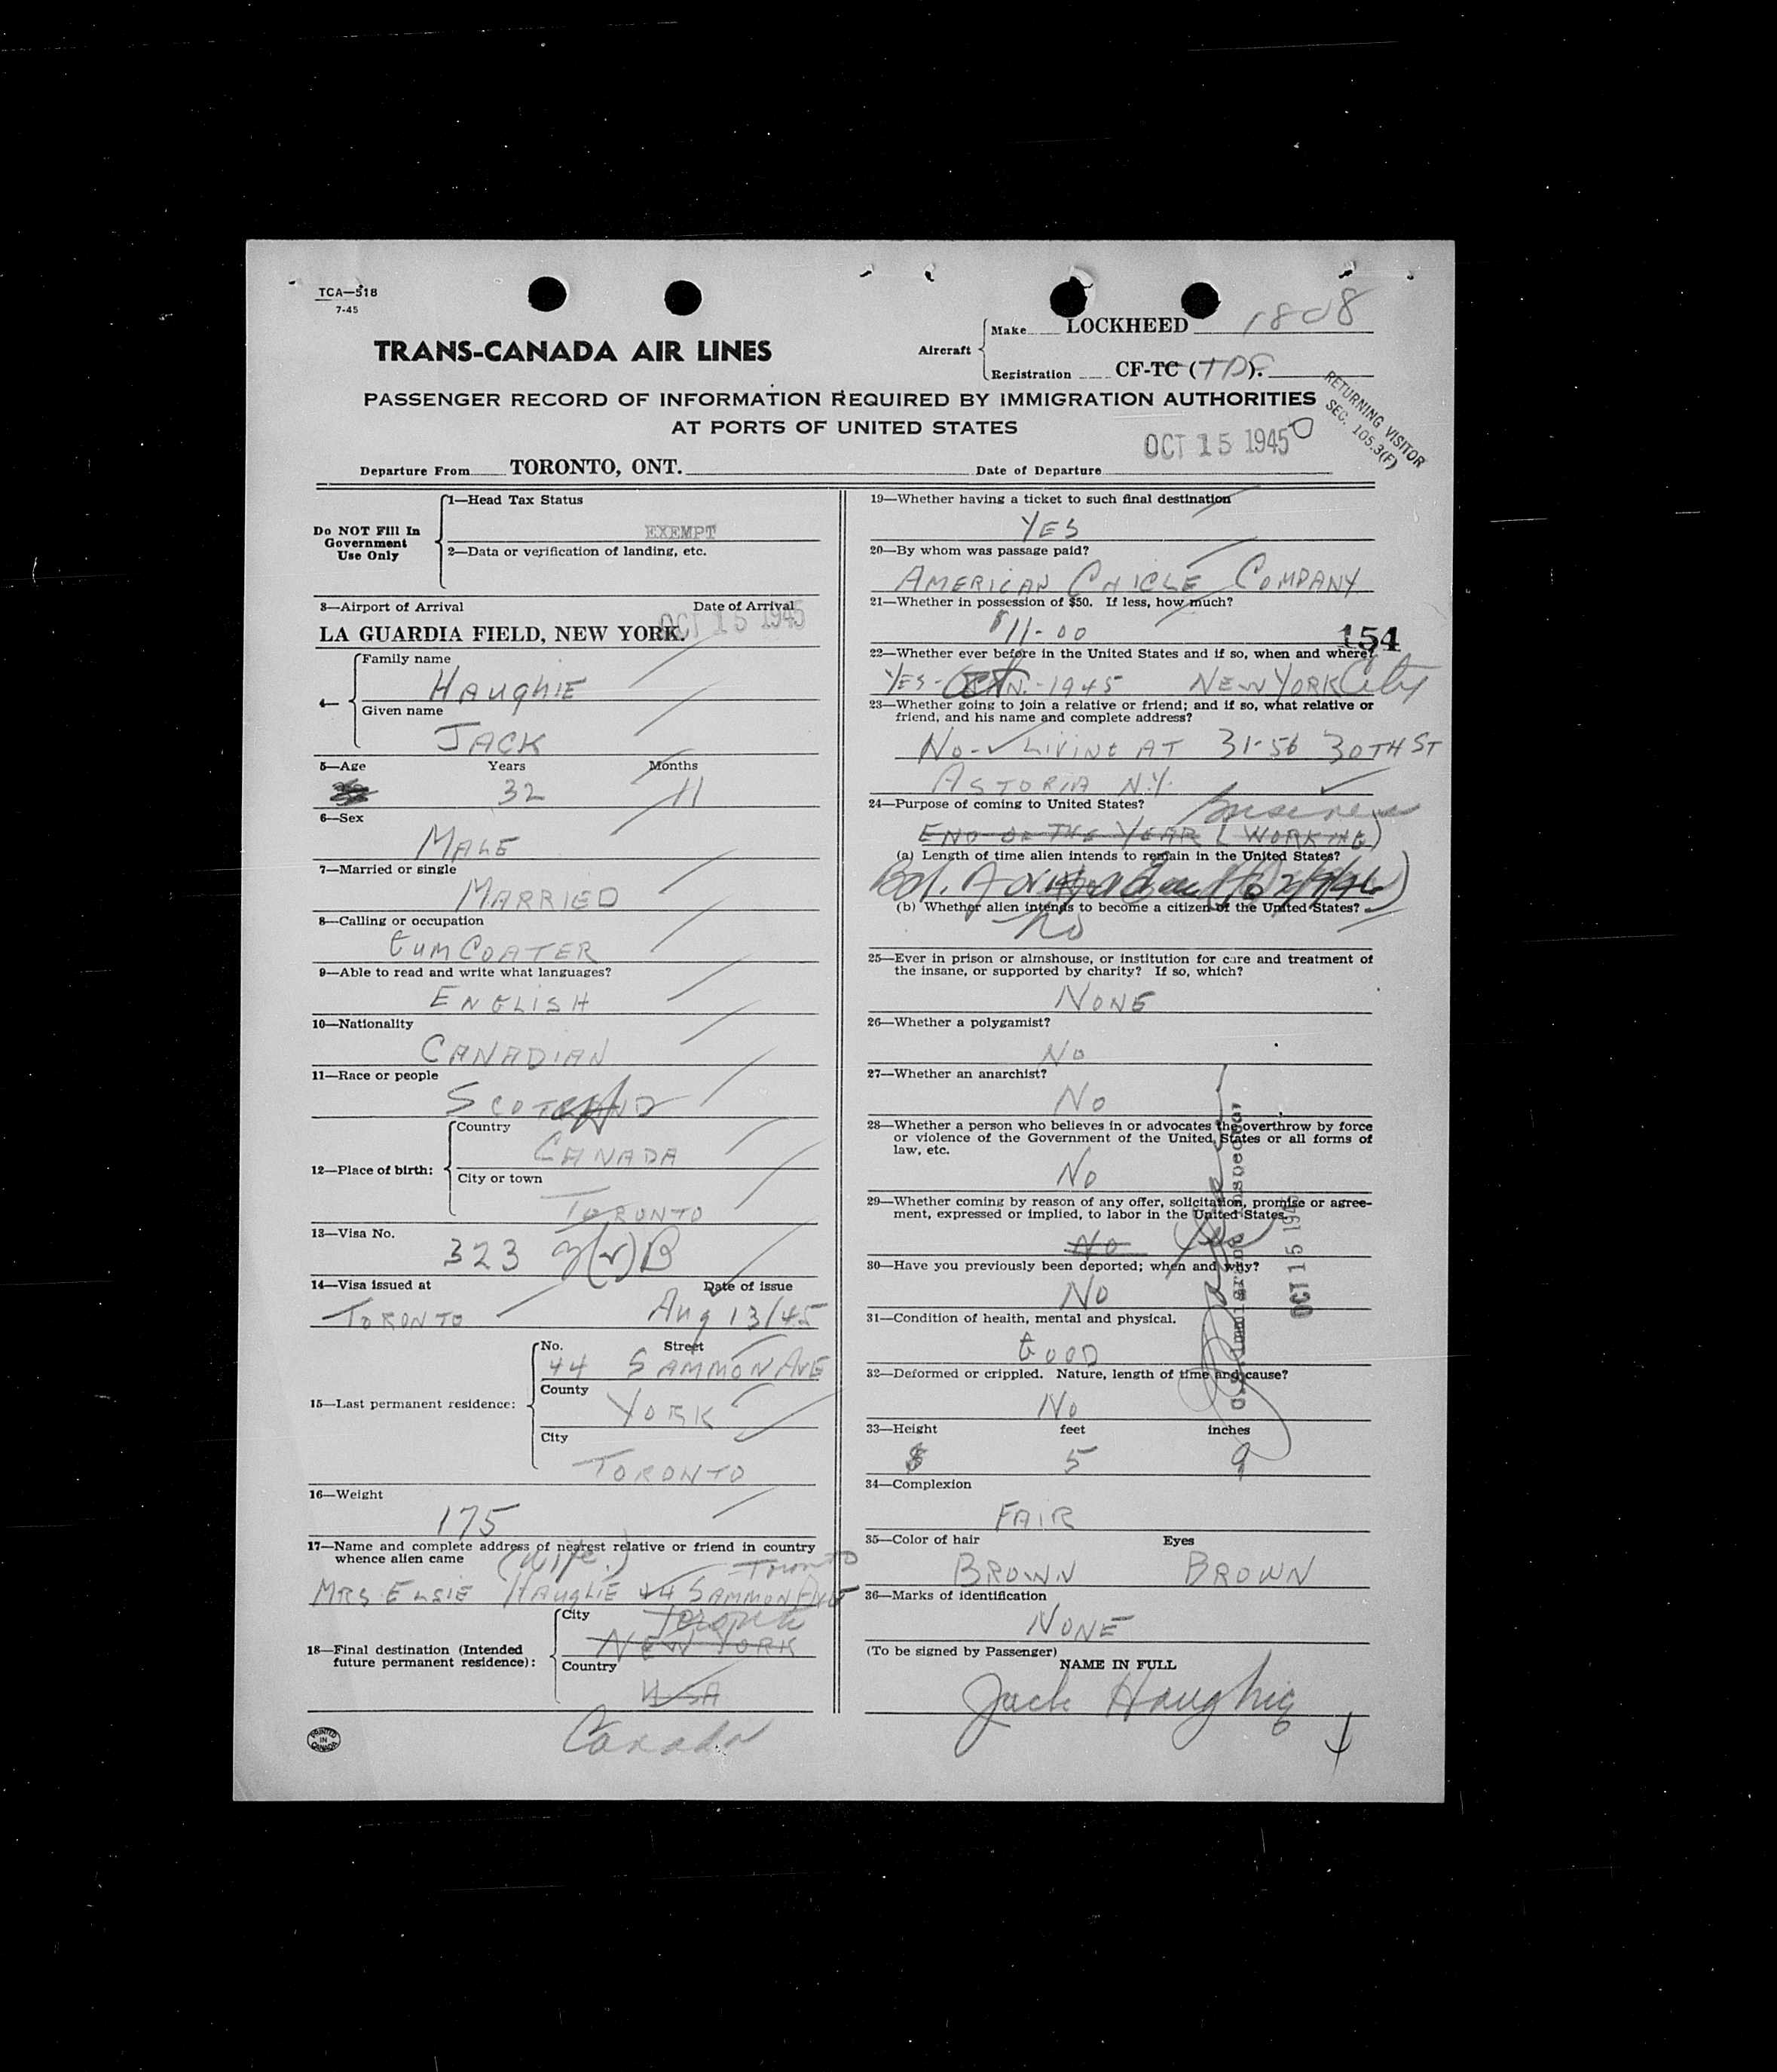 TCA—518
7-45
TRANS-CANADA AIR LINES
Aircraft
Make LOCKHEED 1808
Registration CF-TC (TDF).
PASSENGER RECORD OF INFORMATION REQUIRED BY IMMIGRATION AUTHORITIES
AT PORTS OF UNITED STATES
RETURNING VISITOR
SEC. 105.3(F)
OCT 15 1945
Departure From TORONTO, ONT. Date of Departure
Do NOT Fill In
Government
Use Only
1—Head Tax Status
EXEMPT
2—Data or verification of landing, etc.
3—Airport of Arrival Date of Arrival
LA GUARDIA FIELD, NEW YORK. OCT 15 1945
4— Family name
HAUGHIE
Given name
JACK
5—Age Years Months
32 11
6—Sex
MALE
7—Married or single
MARRIED
8—Calling or occupation
GUM COATER
9—Able to read and write what languages?
ENGLISH
10—Nationality
CANADIAN
11—Race or people
SCOTLAND
12—Place of birth:
Country
CANADA
City or town
TORONTO
13—Visa No.
323 3(2)B
14—Visa issued at Date of issue
TORONTO Aug 13/45
15—Last permanent residence:
No. Street
44 SAMMON AVE
County
YORK
City
TORONTO
16—Weight
175
17—Name and complete address of nearest relative or friend in country
whence alien came
(Wife.) Toronto
MRS ELSIE HAUGHIE 44 SAMMON AVE
18—Final destination (Intended
future permanent residence):
City Toronto
NEW YORK
Country
USA
Canada
PRINTED
IN
CANADA
19—Whether having a ticket to such final destination
YES
20—By whom was passage paid?
AMERICAN CHICLE COMPANY
21—Whether in possession of $50. If less, how much?
$11-00 154
22—Whether ever before in the United States and if so, when and where?
YES- Oct -1945 NEW YORK City
23—Whether going to join a relative or friend; and if so, what relative or
friend, and his name and complete address?
NO- LIVING AT 31-56 30TH ST
ASTORIA N.Y.
24—Purpose of coming to United States?
business
END OF THE YEAR (WORKING)
(a) Length of time alien intends to remain in the United States?
(b) Whether alien intends to become a citizen of the United States?
No
25—Ever in prison or almshouse, or institution for care and treatment of
the insane, or supported by charity? If so, which?
NONE
26—Whether a polygamist?
NO
27—Whether an anarchist?
NO
28—Whether a person who believes in or advocates the overthrow by force
or violence of the Government of the United States or all forms of
law, etc.
NO
29—Whether coming by reason of any offer, solicitation, promise or agree-
ment, expressed or implied, to labor in the United States.
NO Yes
30—Have you previously been deported; when and why?
NO
31—Condition of health, mental and physical.
GOOD
32—Deformed or crippled. Nature, length of time and cause?
NO
33—Height feet inches
5 9
34—Complexion
FAIR
35—Color of hair Eyes
BROWN BROWN
36—Marks of identification
NONE
(To be signed by Passenger)
NAME IN FULL
Jack Haughie
Immigrant Inspector
OCT 15 1945